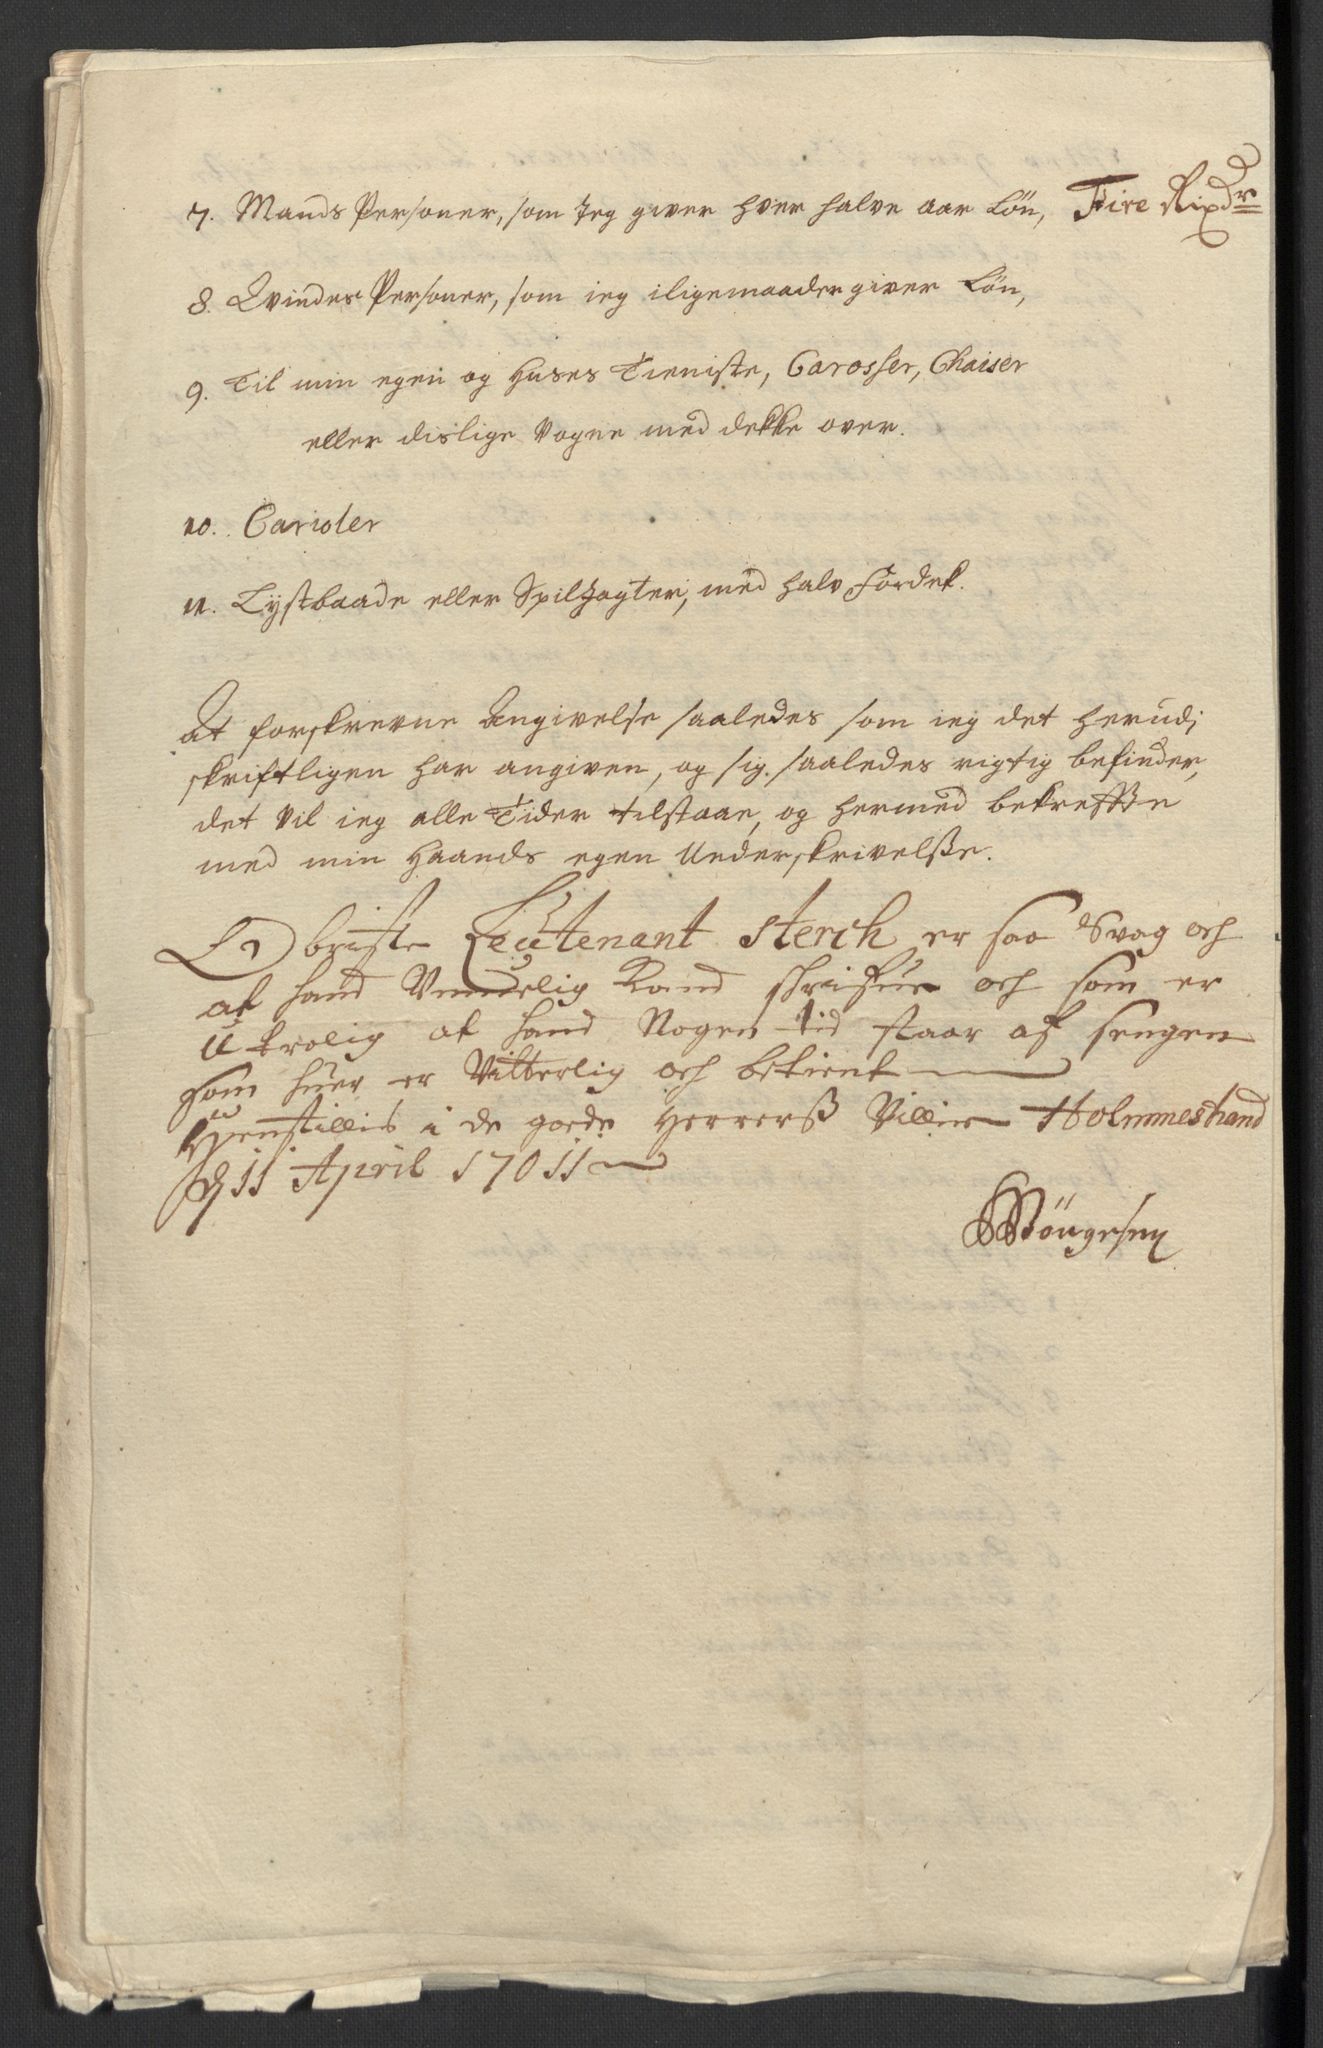 7. Mands Personer, som Jeg giver hver halve aar Løn, Fire Rixdr
8. Qvindes Personer, som ieg iligemaader giver Løn,
9. Til min egen og Huses Tieniste, Carosser, Chaiser
eller dislige Vogne med dekke over.
10. Carioler
11. Lystbaade eller Spiljagter, med halv Fordek.
At forskrevne Angivelse saaledes som ieg det herudi
skriftligen har angiven, og sig saaledes rigtig befinder,
det vil ieg alle Tider tilstaae, og hermed bekreffte
med min Haands egen Underskrivelsse.
Obriste Leutenant Sterch er saa Svag och
at hand Kand och som er
Utrolig at hand Nogen tid staar af sengen
som huer er Vitterlig och bekient
henstillis i de goede Herrerss Villie Holmmestrand
d 11 April 1711